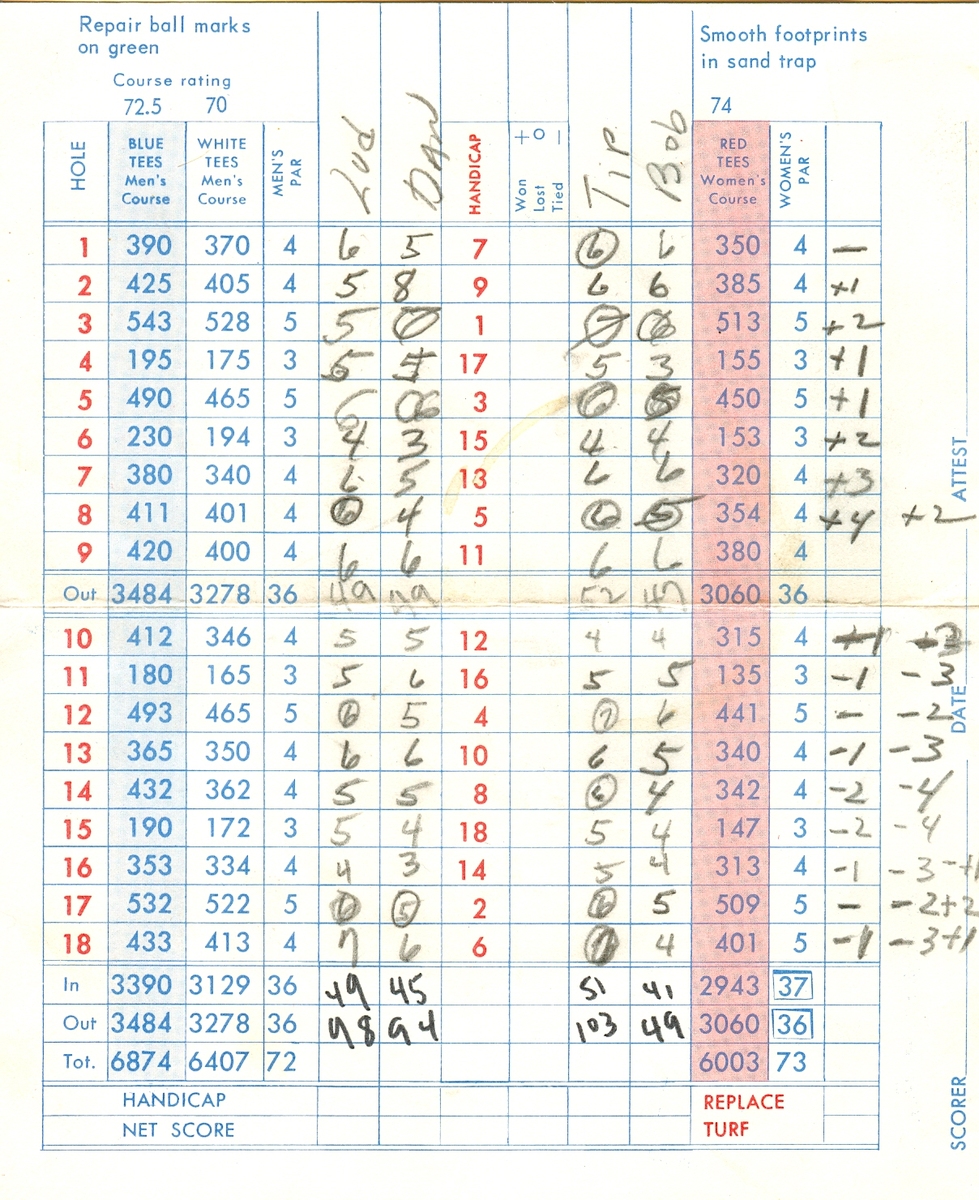 Repair ball marks
on green
Smooth footprints
in sand trap
Course rating
72.5 70 74
HOLE BLUE TEES Men's Course WHITE TEES Men's Course MEN'S PAR Lud Dan HANDICAP + Won O Lost − Tied Tip Bob RED TEES Women's Course WOMEN'S PAR
1 390 370 4 6 5 7 6 6 350 4 —
2 425 405 4 5 8 9 6 6 385 4 +1
3 543 528 5 5 1 513 5 +2
4 195 175 3 5 17 5 3 155 3 +1
5 490 465 5 6 6 3 6 450 5 +1
6 230 194 3 4 3 15 4 4 153 3 +2
7 380 340 4 6 5 13 6 6 320 4 +3
8 411 401 4 6 4 5 6 5 354 4 +4 +2
9 420 400 4 6 6 11 6 6 380 4
Out 3484 3278 36 49 52 3060 36
10 412 346 4 5 5 12 4 4 315 4
11 180 165 3 5 6 16 5 5 135 3 -1 -3
12 493 465 5 6 5 4 7 6 441 5 - -2
13 365 350 4 6 6 10 6 5 340 4 -1 -3
14 432 362 4 5 5 8 6 4 342 4 -2 -4
15 190 172 3 5 4 18 5 4 147 3 -2 -4
16 353 334 4 4 3 14 5 4 313 4 -1 -3 -+1
17 532 522 5 6 5 2 6 5 509 5 - -2+2
18 433 413 4 7 6 6 7 4 401 5 -1 -3+1
In 3390 3129 36 49 45 51 41 2943 37
Out 3484 3278 36 98 94 103 49 3060 36
Tot. 6874 6407 72 6003 73
HANDICAP
NET SCORE
REPLACE
TURF
ATTEST
DATE
SCORER